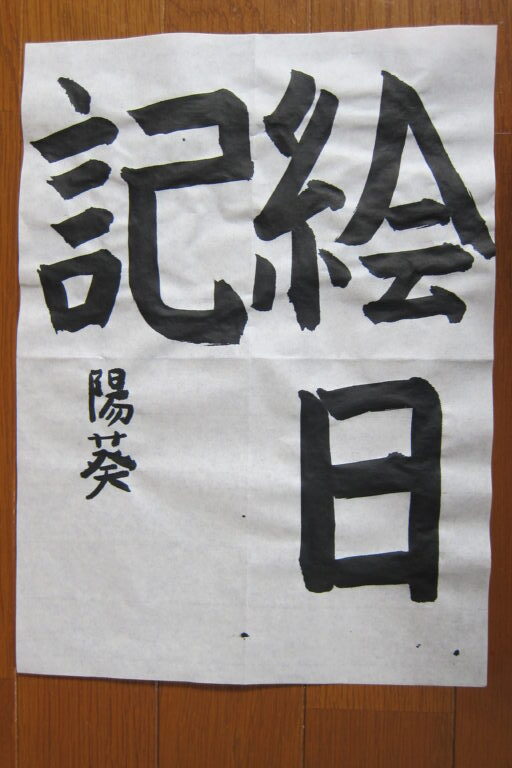 絵日
記
陽葵